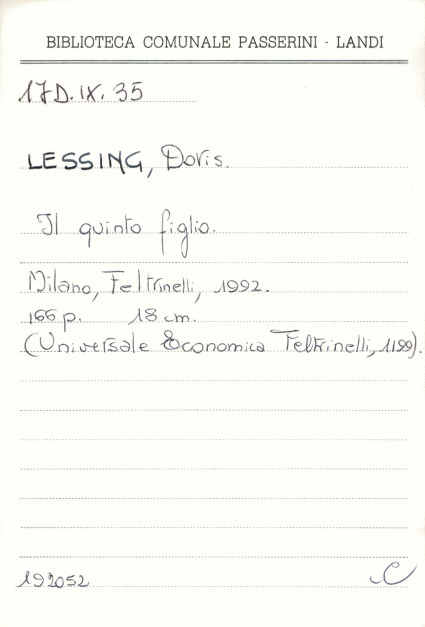 BIBLIOTECA COMUNALE PASSERINI - LANDI
17D.IX.35
LESSING, Doris.
Il quinto figlio.
Milano, Feltrinelli, 1992.
166 p. 18 cm.
(Universale Economica Feltrinelli, 1199).
192052 C